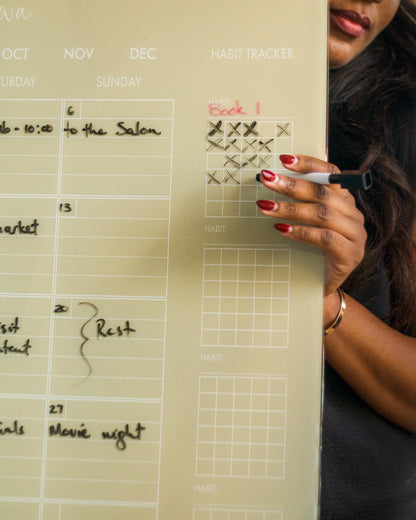 OCT NOV DEC HABIT TRACKER
SUNDAY
HABIT:
Book 1
6
10:00 to the Salon
13
HABIT:
20
Rest
HABIT:
27
Movie night
HABIT: